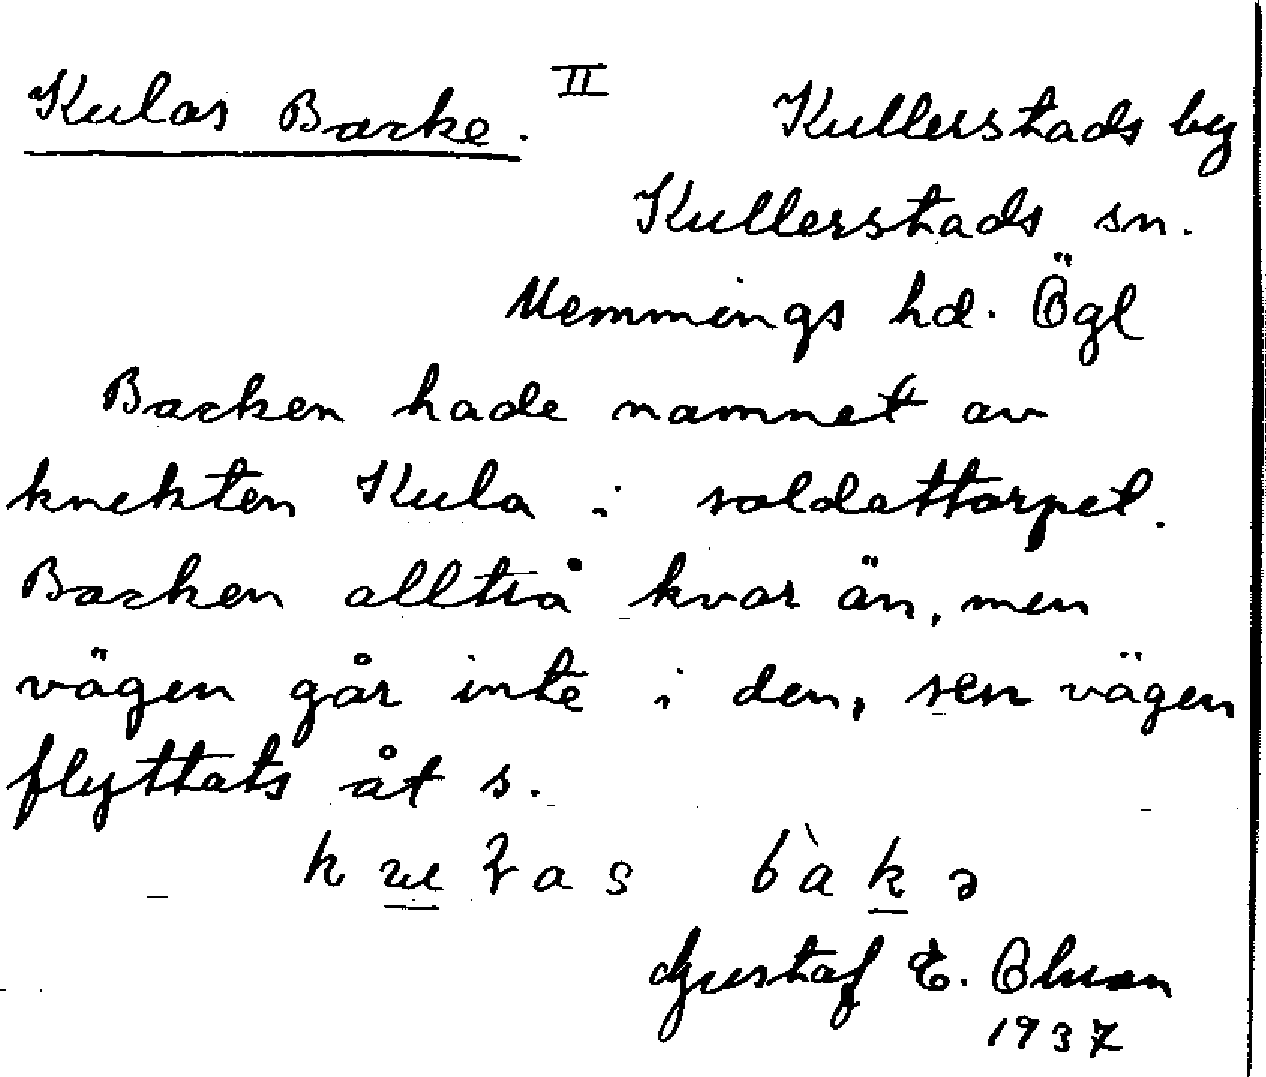 Kulas Backe. II Kullerstads by
Kullerstads sn.
Memmings hd. Ögl
Backen hade namnet av
knekten Kula i soldattorpet.
Backen alltså kvar än, men
vägen går inte i den, sen vägen
flyttats åt s.
Gustaf E.
1937